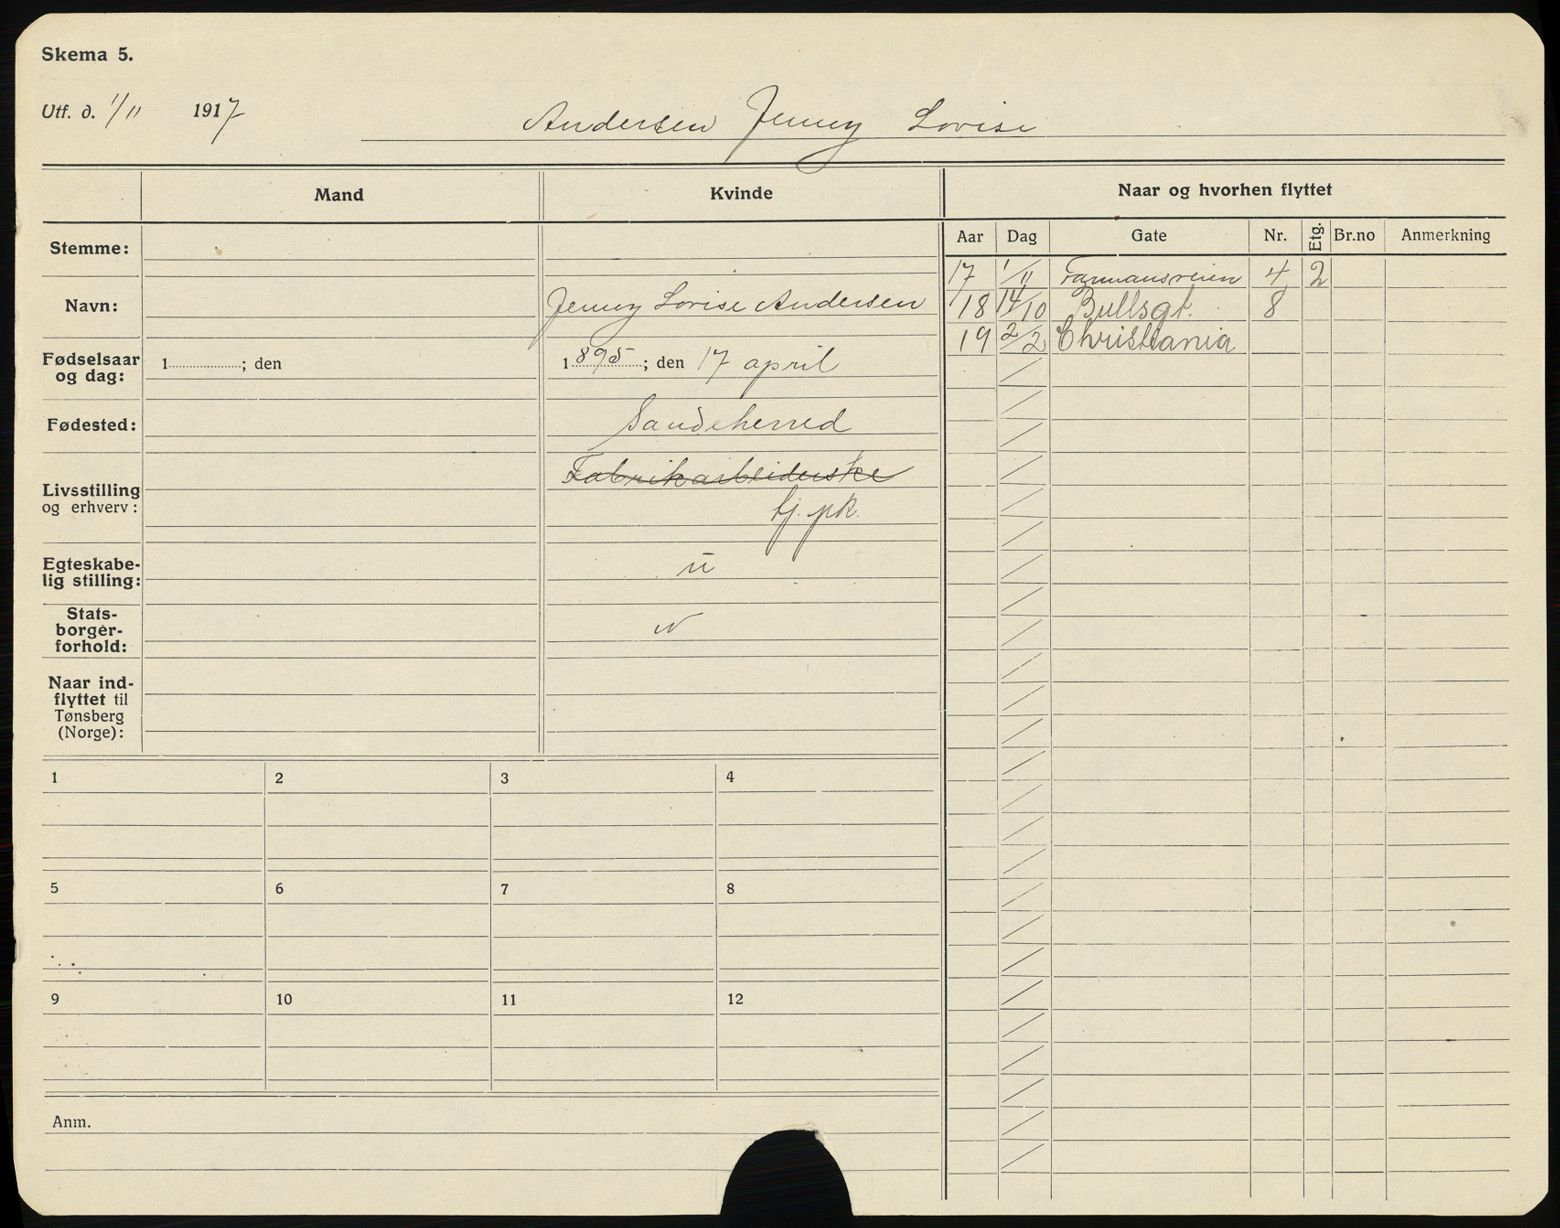 Skema 5.
Utf. d. 1/11 1917
Andersen Jenny Lovise
Mand Kvinde Naar og hvorhen flyttet
Aar Dag Gate Nr. Etg. Br.no Anmerkning
Stemme:
17 1/11 Farmansveien 4 2
Navn: Jenny Lovise Andersen
18 14/10 Bullsgt. 8
19 2/2 Christiania
Fødselsaar og dag: 1 ; den 1895; den 17 april
Fødested: Sandeherred
Livsstilling og erhverv: Fabrikarbeiderske
tj. pk.
Egteskabe-
lig stilling: u
Stats-
borger-
forhold: n
Naar ind-
flyttet til
Tønsberg
(Norge):
1 2 3 4
5 6 7 8
9 10 11 12
Anm.